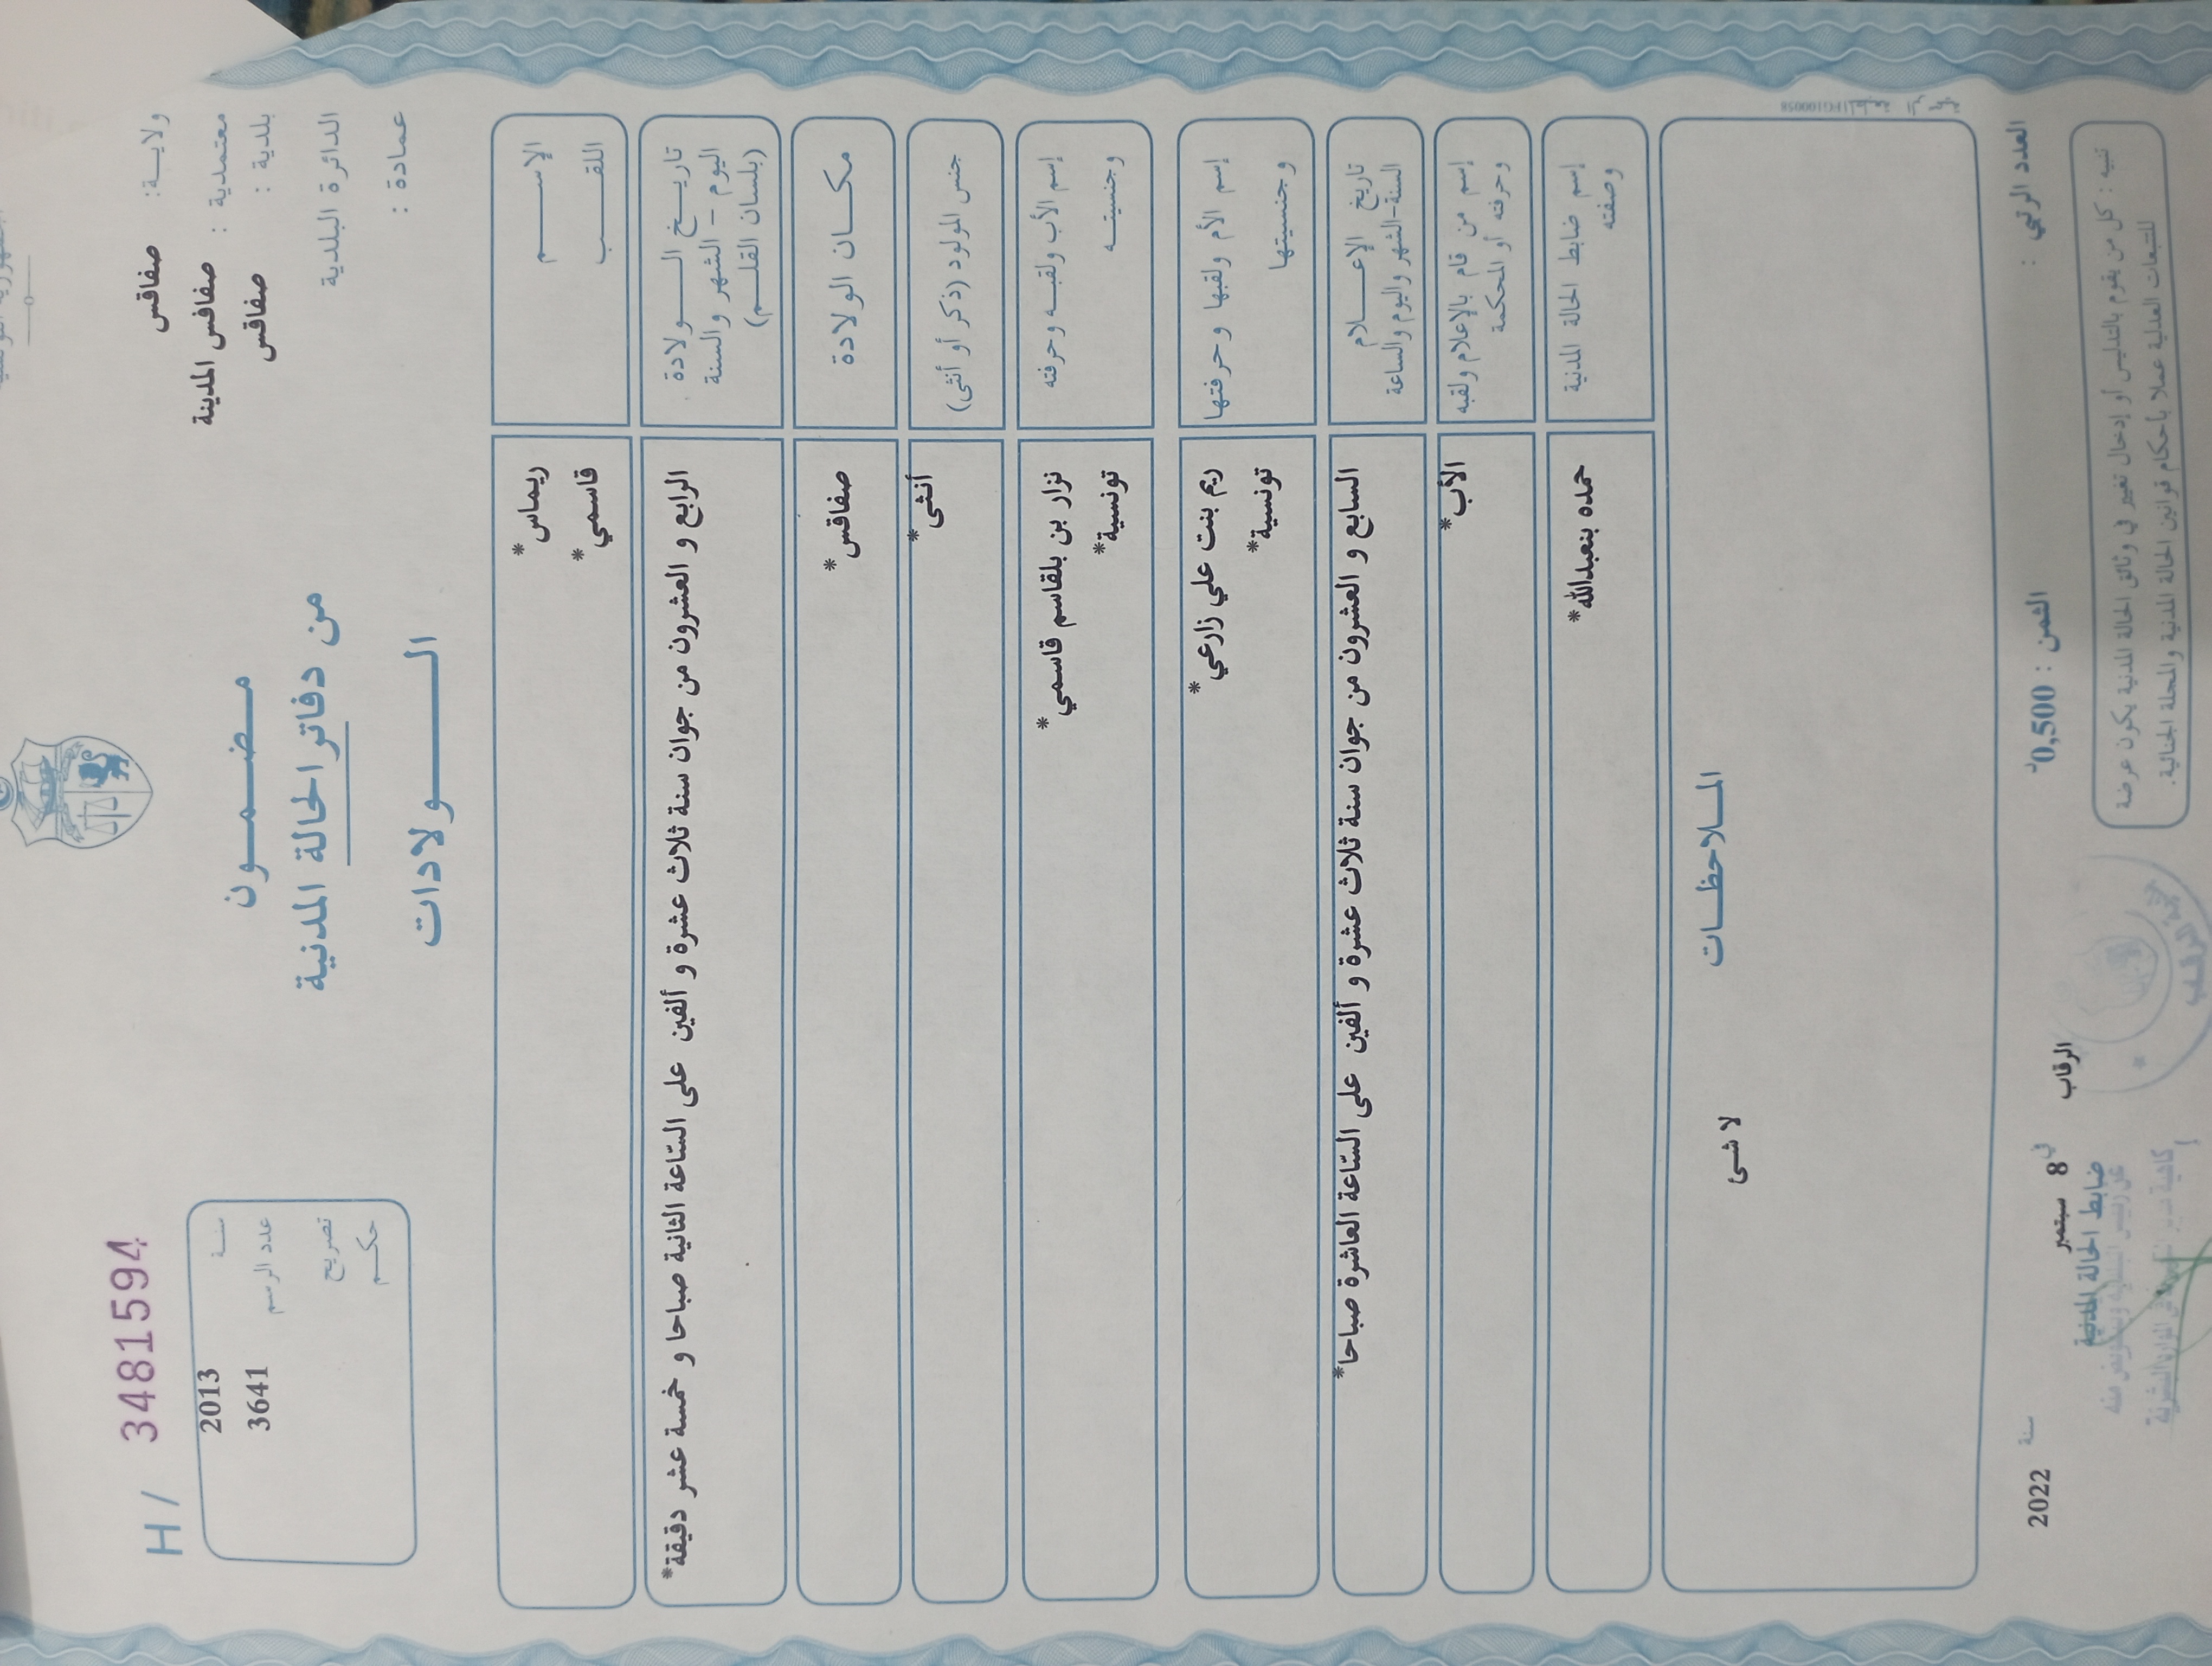 ولايـــة: صفاقس
معتمدية : صفاقس المدينة
بلدية : صفاقس
الدائرة البلدية
عمادة :
H / 3481594
سنـــة 2013
عدد الرسم 3641
تصريح
حكـــم
مـضـمـــون
من دفاتر الحالة المدنية
الـــولادات
الإســــم ريماس*
اللقــــب قاسمي*
تاريـــخ الــــولادة
اليوم - الشهر والسنة
(بلسان القلـــم)
الرابع و العشرون من جوان سنة ثلاث عشرة و ألفين على السّاعة الثانية صباحا و خمسة عشر دقيقة*
مكـــان الولادة صفاقس*
جنس المولود (ذكر أو أنثى) أنثى*
إسم الأب ولقبـــه وحرفته نزار بن بلقاسم قاسمي*
وجنسيتـــه تونسية*
إسم الأم ولقبها وحرفتها ريم بنت علي زارعي*
وجنسيتها تونسية*
تاريخ الإعـــــلام
السنة-الشهر واليوم والساعة
السابع و العشرون من جوان سنة ثلاث عشرة و ألفين على السّاعة العاشرة صباحا*
إسم من قام بالإعلام ولقبه الأب*
وحرفته أو المحكمة
إسم ضابط الحالة المدنية حمده بنعبدالله*
وصفته
المـــلاحظـــات
لا شئ
العدد الرتبي :
الثمن : 0,500د
الرقاب في 8 سبتمبر سنة 2022
ضابط الحالة المدنية
تنبيه : كل من يقوم بالتدليس أو إدخال تغيير في وثائق الحالة المدنية يكون عرضة
للتتبعات العدلية عملا بأحكام قوانين الحالة المدنية والمجلة الجنائية.